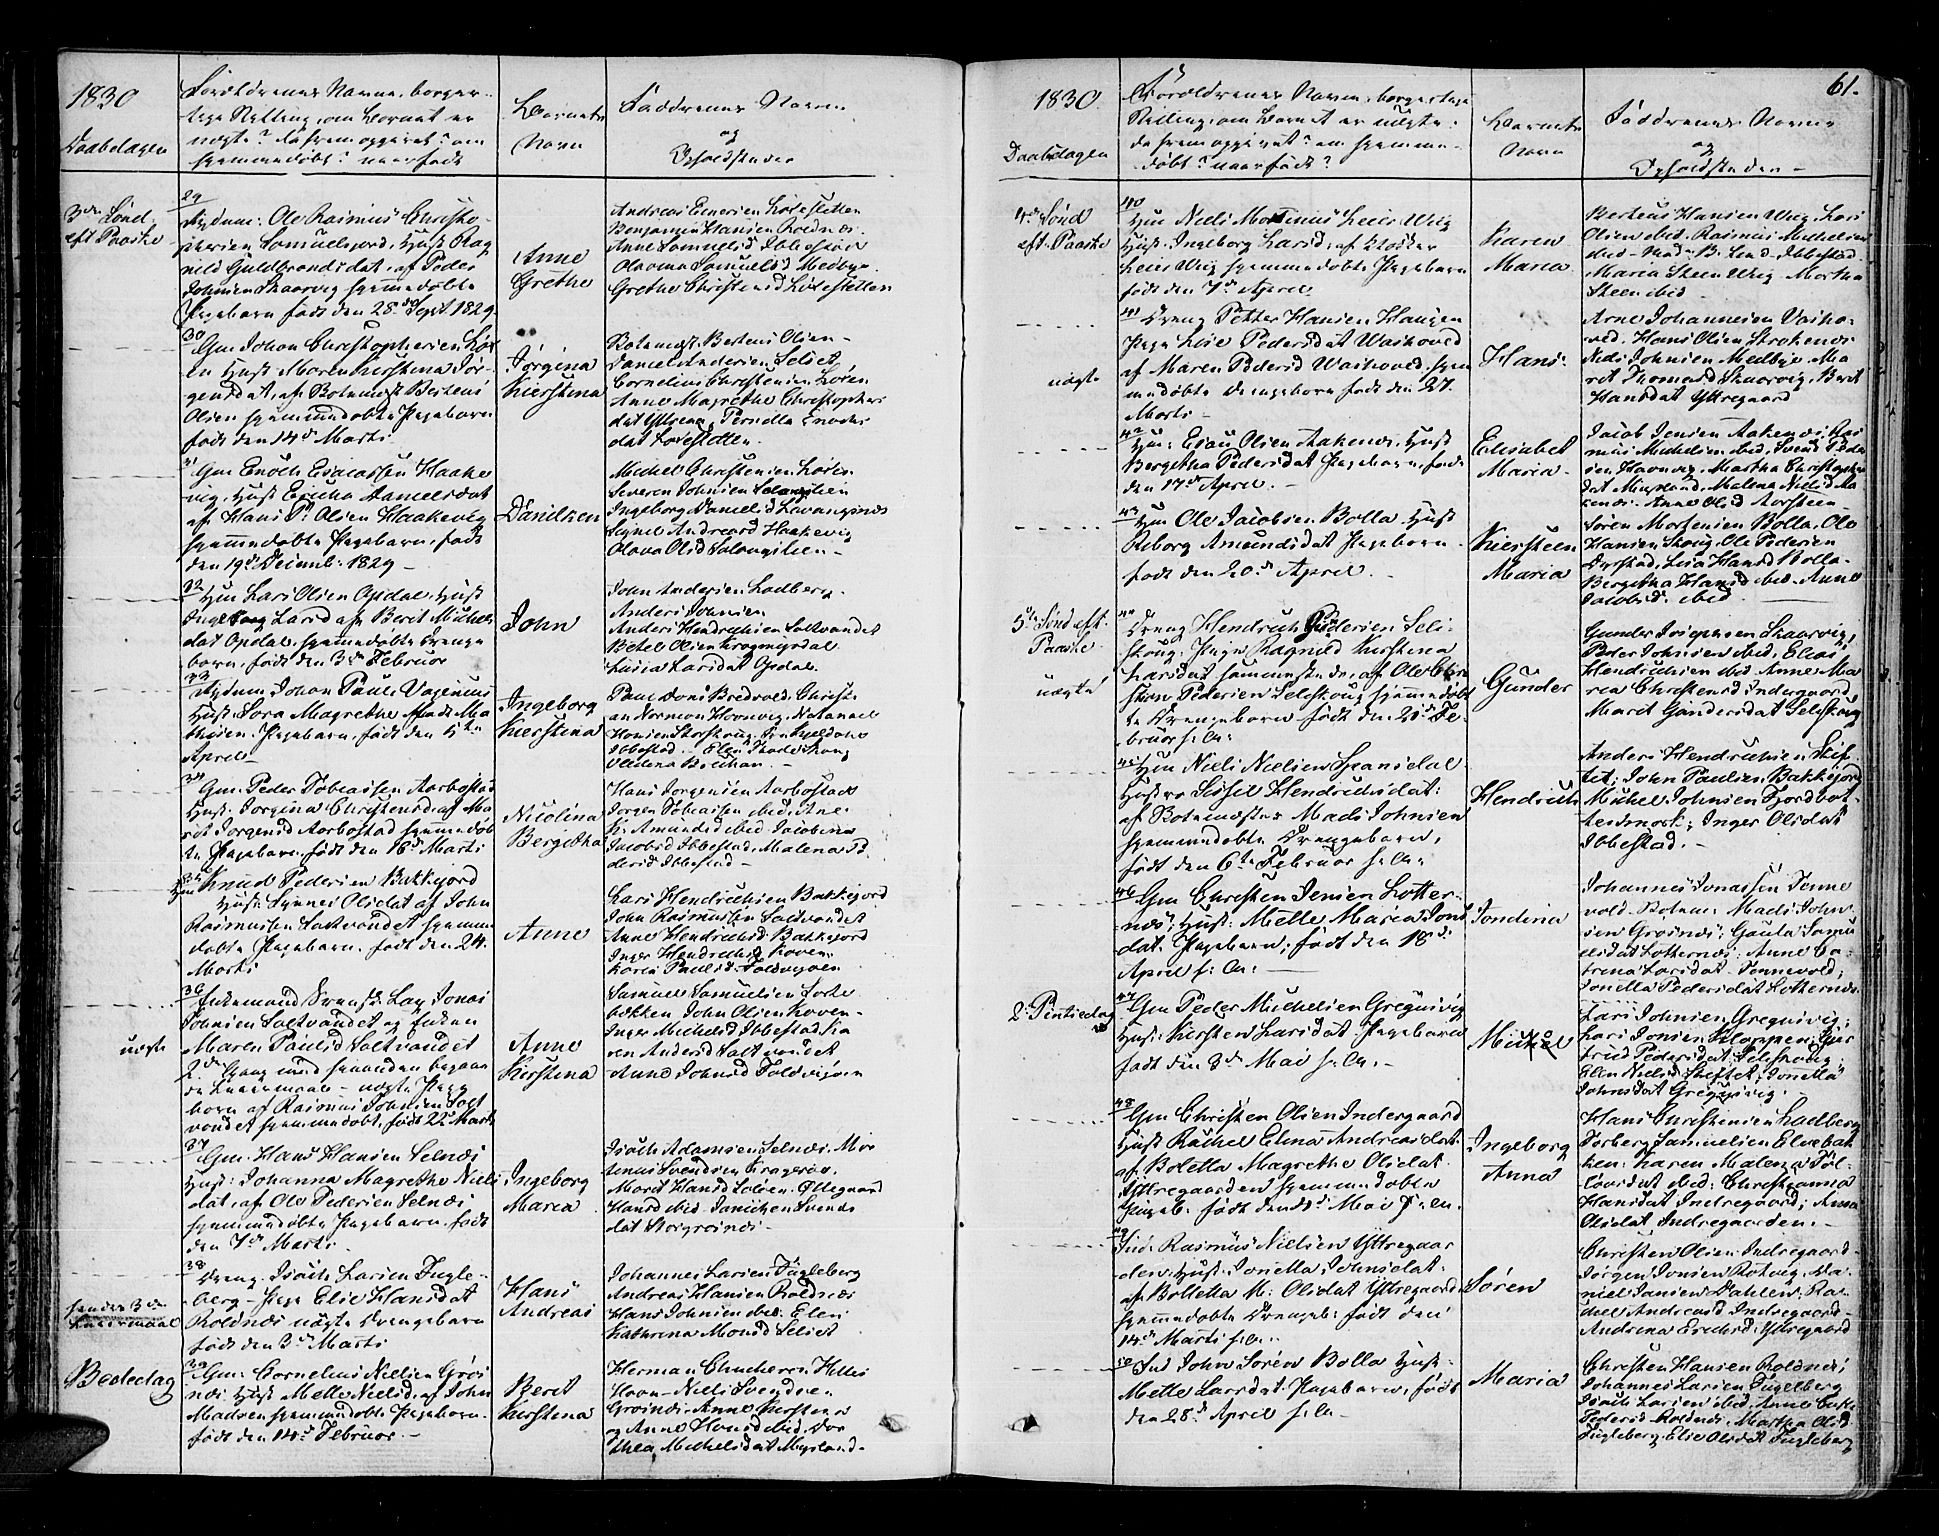 1830
Daabsdagen
Forældrenes Navne, borger-
lige Stilling, om Barnet er
uægte? da frem opgivet? om
hjemmedøbt? naar født
Barnets
Navn
Faddrenes Navne
og
Opholdssteder
3de Sønd.
eft Paaske
29
Ole Rasmus Christo-
phersen Samuelsjord, Hust. Rag
nild Guldbrandsdat, af Peder
Johnsen Skaarvig hjemmedøbte
Pigebarn født den 28de Sept. 1829
Anne
Grethe
Andreas Enersen Løvestetten
Benjamin Hansen Roldnes
Anne Samuelsd Ibbestad
Olaoma Samuelsd Medbye
Grethe Christensd Løvestetten
30
Gm. Johan Christophersen
Hust Maren Kirstina Jør-
gensdat, af Botnmest Berteus
Olsen hjemmedøbte Pigebarn
født den 14de Marts
Jørgina
Kierstina
Botnmest. Berteus Olsen
Daniel Andersen Selset
Cornelius Christensen Løren
Anne Magrethe Christophers
dat Yttreng, Pernilla Enochs
dat Løvestetten.
31
Gm Enoch Esaiassen Haake
vig, Hust Ericha Samuelsdat
af Hans P. Olsen Haakevig
hjemmedøbte Pigebarn, født
den 19de Decemb: 1829
Danilken
Michel Christensen Løren
Severen Johnsen Salangslien
Ingeborg Danielsd Lavangsnes
Synne Andreasd Haakevig
Olava Olsd Salangslien
32
Hm Lars Olsen Opdal, Hust
Ingeborg Larsd af Berit Michels
dat Opdal, hjemmedøbte Drenge
barn, født den 3de Februar
John
John Andersen Ladberg.
Anders Johnsen
Anders Hendrichsen Saltvandet
Betel Olsen Krogmyrdal
Larsdat Opdal
33
Johan Paul Vagenius
Hust: Sara Magrethe født Ma
thisen. Pigebarn, født den 5te
April
Ingeborg
Kierstina
Paul Bredvold. Christi
an Norman Havnvig. Natanael
Hansen Storskoug. Fru Kjeldahl
Ibbestad. Elen Skoug
34
Gm. Peder Tobiassen Aarbostad
Hust: Jørgina Christensd af Ma
rit Jørgensd Aarbostad hjemmedøb
te Pigebarn født den 16de Marts
Nicolina
Bergitha
Hans Jørgensen Aarbostad
Jørgen Tobiassen ibid: Ane
K. Amundsd ibid. Jacobina
Jacobsd Ibbestad. Malena Pe
dersd Ibbestad
35
Knud Pedersen Bakkejord
Hust: Synnes Olsdat af John
Rasmussen Saltvandet hjemme
døbte Pigebarn, født den 24.
Marts
Anne
Lars Hendrichsen Bakkejord
John Rasmussen Saltvandet
Anne Hendrichsd. Bakkejord
Inger Hendrichsd Hoven
Karen Paulsd. Foldvigøen
36
uægte
Enkemand Svensk Lap Jonas
Johnsen Saltvandet og Enken
Maren Paulsd Saltvandet
2de Gang med hverandre begaa
de Leiermaal - uægte Pige
barn af Rasmus Johnsen Salt
vandet hjemmedøbt, født 22de Marts
Anne
Kirstina
Samuel Samuelsen Sørle
bækken John Olsen Hoven
Inger Michelsd Ibbestad Ka
ren Andersd Saltvandet
Anne Johnsd Foldvigøen
37
Gm. Hans Hansen Selnæs
Hust: Johanna Magrethe Niels
dat, af Ole Pedersen Selnæs
hjemmedøbte Pigebarn, født
den 7de Marts
Ingeborg
Maria
Isach Adamsen Selnæs, Mor
tenius Svendsen Kragerøe,
Marit Hansd Løløen. Ollegaard
Hansd ibid. Danichen Svends
dat Storgrøinæs
38
hendes 3de
Leiermaal
Dreng Isach Larsen Fugle-
berg - Pige Elie Hansdat
Roldnæs uægte Drengebarn
født den 3de Marts
Hans
Andreas
Johannes Larsen Fugleberg
Andreas Hansen Roldnæs
Hans Johnsen ibid. Elen
Kathrina Monsd Selset
Bededag
39
Gm: Cornelius Nielsen Grøi
næs Hust Mette Nielsd. af John
Madsen hjemmedøbte Pigebarn.
født den 14de Februar
Berit
Kirstina
Herman Hilles
Havn - Niels Svendsen
Grøinæs. Anne Kirstina
og Anne Hansd ibid. Dor
thea Michelsdat Myrland
61.
1830.
Daabsdagen
Forældrenes Navne, borgerlige
Stilling, om Barnet er uægte:
da frem opgivet? om hjemme-
døbt? naar født?
Barnets
Navn
Faddrenes Navne
og
Opholdssteder
4de Sønd
eft. Paaske
40
Hm Niels Martinus Leier Wiig
Hust: Ingeborg Larsd, af Klokker
Leier Wiig hjemmedøbte Pigebarn
født den 7de April
Karen
Maria
Berteus Hansen Wiig, Lars
Olsen ibid. Rasmus Michelsen
ibid. Mad: B. Lind Ibbestad
Maria Steen Wiig. Martha
Steen ibid
uægte
41
Dreng Petter Hansen Haugen
Pige Lise Pedersdat Vaskoved
af Maren Pedersd Vaskoved, hjem
medøbte Drengebarn født den 27.
Marts
Hans.
Arne Johannesen Vaskho-
ved. Hans Olsen Strokenæs
Nils Johnsen Medbye. Ma
rit Thomasd Skaarvig. Berit
Hansdat Yttregaard
42
Hm: Esau Olsen Aakenes, Hust
Bergetha Pedersdat Pigebarn, født
den 17de April.
Elisabet
Maria
Jacob Jensen Aakenes Ras
mus Michelsen ibid, Svend Peder
sen Havnvig. Martha Christophers
dat Myrland. Malena Nielsd Aa
kenes. Anne Olsd Aarsteen
43
Hm Ole Jacobsen Bolla. Hust
Reborg Amundsdat Pigebarn
født den 20de April.
Kiersteen
Maria
Søren Mortensen Bolla. Ole
Hansen Skoug. Ole Pedersen
Dyrstad, Lisa Hansd Bolla
Bergetha Hansd ibid. Anne
Jacobsd. ibid
5te Sønd eft.
Paaske
uægte
44
Dreng Hendrich Pedersen Sele-
skoug. Pige Ragnild Kirstina
Larsdat sammesteds, af Ole Chri
stian Pedersen Seleskoug hjemmedøb
te Drengebarn født den 21de Fe-
bruar s: A:
Gunder
Gunder Josephsen Skaarvig,
Peder Johnsen ibid. Elias
Hendrichsen ibid Anne Ma
ria Christensd Indergaard
Marit Gundersdat Seleskoug
45
Hm Niels Nielsen Spansdal
Hustro Sissel Hendrichsdat:
af Botnmester Mads Johnsen
hjemmedøbte Drengebarn,
født den 6te Februar s: A:
Hendrich
Anders Hendrichsen Skif-
tet; John Paulsen Bakkejord
Michel Johnsen Fjordbot
teidmark; Inger Olsdat
Ibbestad.
46
Gm Christen Jensen Lotter-
næs, Hust: Mette Maria Jons
dat. Pigebarn, født den 18de
April s: A:
Jondina
Johannes Jonassen Tenne
vold. Botnm: Mads John
sen Grøinæs; Gaula Samu
elsdat Lotternæs: Anne Ca-
trina Larsdat Tennevold;
Jonetta Pedersdat Lotternæs
2 Pintsedag
47
Gm Peder Michelsen Gregusvig
Hust: Kirsten Larsdat. Pigebarn
født den 3de Mai s: A:
Lars Johnsen Gregusvig;
Lars Jonsen Kloppen; Gjer
trud Pedersdat Seleskoug;
Elen Nielsd Skiftet; Jonetta
Johnsdat Gregusvig.
48
Gm Christen Olsen Indergaard
Hust Rachel Elena Andreasdat
af Boletta Magrethe Olsdat
Yttregaarden hjemmedøbte
Pigeb: født den Mai s: A:
Ingeborg
Anna
Hans Christensen Ladberg
Torberg Samuelsen Elvebak
ken: Karen Malena Tol-
levsdat ibid: Christianna
Hansdat Indregaard; Anna
Olsdat Indregaarden.
49
Ind: Rasmus Nielsen Yttregaar
den. Hust: Jonetta Johnsdat:
af Boletta M: Olsdat Yttregaard
hjemmedøbte Drengeb: født den
14de Marts s: A:
Søren
Christen Olsen Indregaard
Jørgen Jonsen Rotvig. Da-
niel Jansen Dahlen. Ra-
chel Andreasd Indregaard
Andrina Erichsd. Yttregaard
50
Ind John Sørens Bolla Hust
Mette Larsdat. Pigebarn, født
den 28de April s: A
Maria
Christen Hansen Roldnæs;
Johannes Larsen Fugleberg
Isach Larsen ibid. Anne
Pedersd Roldnæs. Martha Olsd.
Fugleberg. Elie Olsdat Fugleberg